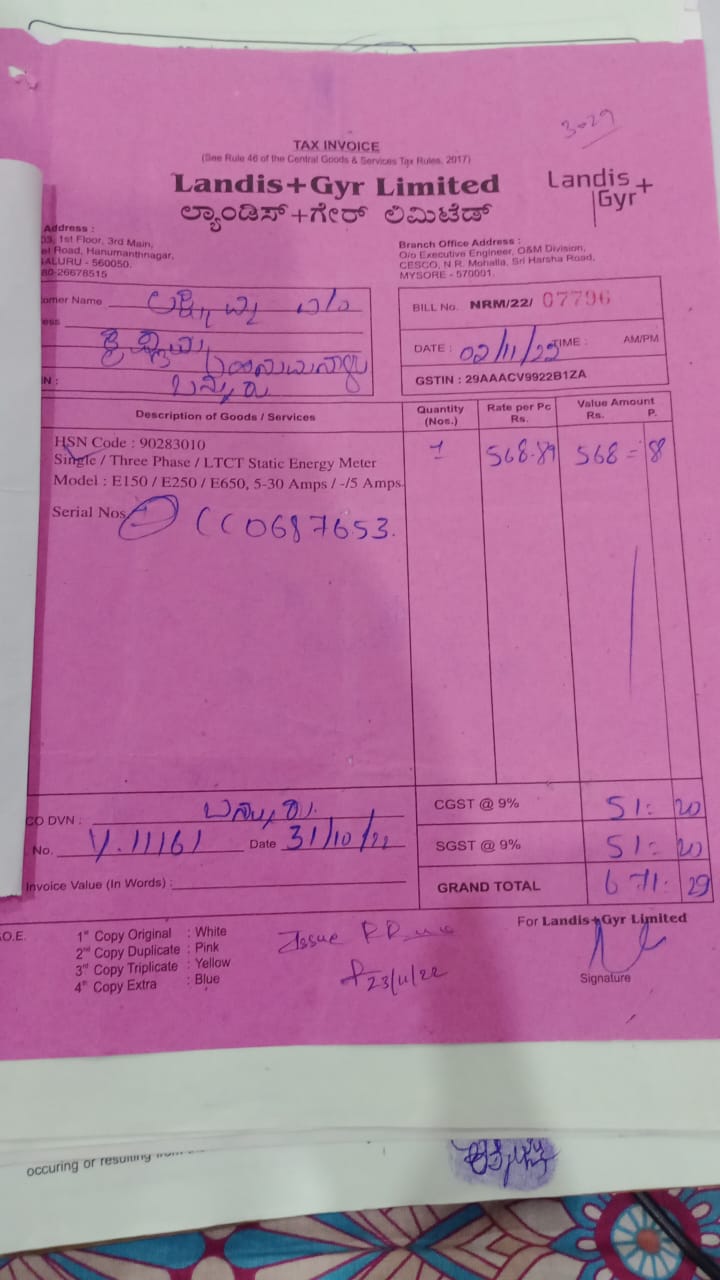 3-29
TAX INVOICE
(See Rule 46 of the Central Goods & Services Tax Rules, 2017)
Landis+Gyr Limited
ಲ್ಯಾಂಡಿಸ್+ಗೇರ್ ಲಿಮಿಟೆಡ್
Landis+
Gyr
Address :
1st Floor, 3rd Main,
Road, Hanumanthnagar,
560050.
26678515
Branch Office Address :
O/o Executive Engineer, O&M Division,
CESCO, N.R. Mohalla, Sri Harsha Road,
MYSORE - 570001.
Name
BILL No. NRM/22/ 07796
DATE : 02/11/22 TIME : AM/PM
GSTIN : 29AAACV9922B1ZA
ಬನ್ನೂರು
Description of Goods / Services
Quantity (Nos.)
Rate per Pc Rs.
Value Amount Rs. P.
HSN Code : 90283010
Single / Three Phase / LTCT Static Energy Meter
Model : E150 / E250 / E650, 5-30 Amps / -/5 Amps.
1 568.89 568 = 8
Serial Nos. CC0687653.
DVN : ಬನ್ನೂರು.
CGST @ 9% 51: 20
No. Y.11161 Date 31/10/22
SGST @ 9% 51: 20
Invoice Value (In Words) :
GRAND TOTAL 671. 29
For Landis+Gyr Limited
1st Copy Original : White
2nd Copy Duplicate : Pink
3rd Copy Triplicate : Yellow
4th Copy Extra : Blue
Issue RR
23/11/22
Signature
occuring or resulting